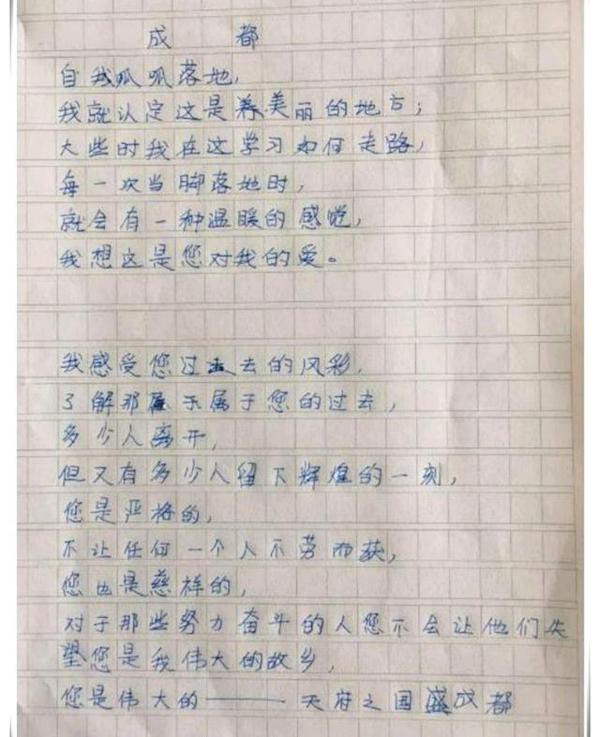 成都
自我呱呱落地，
我就认定这是养美丽的地方；
大些时我在这学习如何走路，
每一次当脚落地时，
就会有一种温暖的感觉，
我想这是您对我的爱。
我感受您过去的风彩，
了解那属于您的过去，
多少人离开，
但又有多少人留下辉煌的一刻，
您是严格的，
不让任何一个人不劳而获，
您也是慈祥的，
对于那些努力奋斗的人您不会让他们失
望您是我伟大的故乡，
您是伟大的——天府之国成都